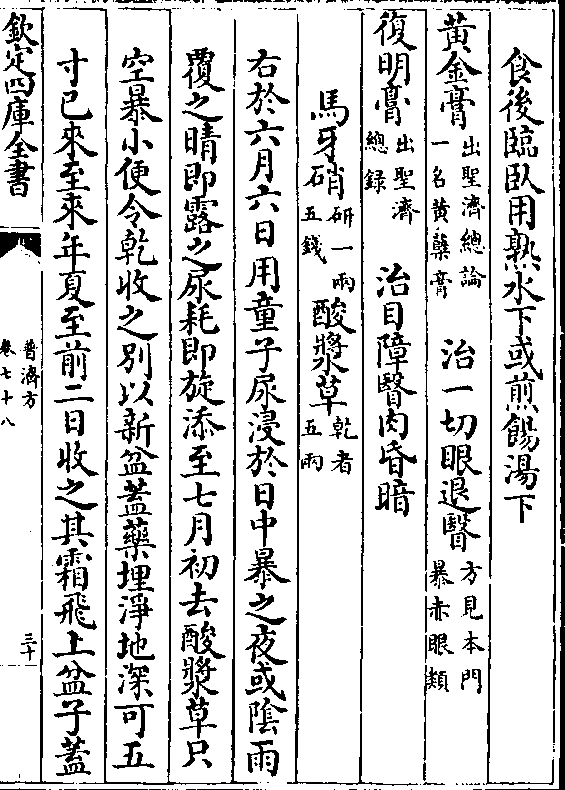 食後臨臥用熟水下或煎餳湯下
黄金膏出聖濟總論一名黄蘗膏 治一切眼退瞖方見本門暴赤眼類
復明膏出聖濟總録 治目障瞖肉昏暗
馬牙硝研一兩五錢 酸漿草乾者五兩
右於六月六日用童子尿浸於日中暴之夜或隂雨
覆之晴即露之尿耗即旋添至七月初去酸漿草只
空暴小便令乾收之别以新盆蓋藥埋淨地深可五
寸已來至來年夏至前二日收之其霜飛上盆子蓋
欽定四庫全書
普濟方
卷七十八
三十